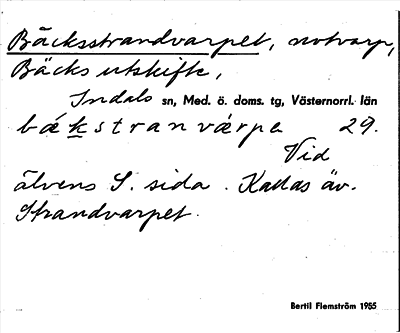 Bäcksstrandvarpet, notvarp,
Bäcks utskifte,
Indals sn, Med. ö. doms. tg, Västernorrl. län
bǽkstranvárpe 29.
Vid
älvens S. sida. Kallas äv.
Strandvarpet.
Bertil Flemström 1955